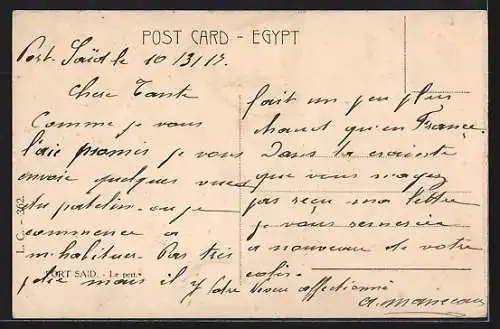 POST CARD - EGYPT
Port-Saïd le 10/3/15.
Chere Tante
Comme je vous
l'aie promis je vous
envoie quelques vues
du patelin. ou je
commence a
m'habituer. Pas très
jolie mais il y
fait un peu plus
chaud qu'en France.
Dans la crainte
que vous n'ayez
pas reçu ma lettre
je vous remercie
a nouveau de votre
colis.
Votre neveu affectionné
L. C. - 362.
PORT SAID. - Le port.